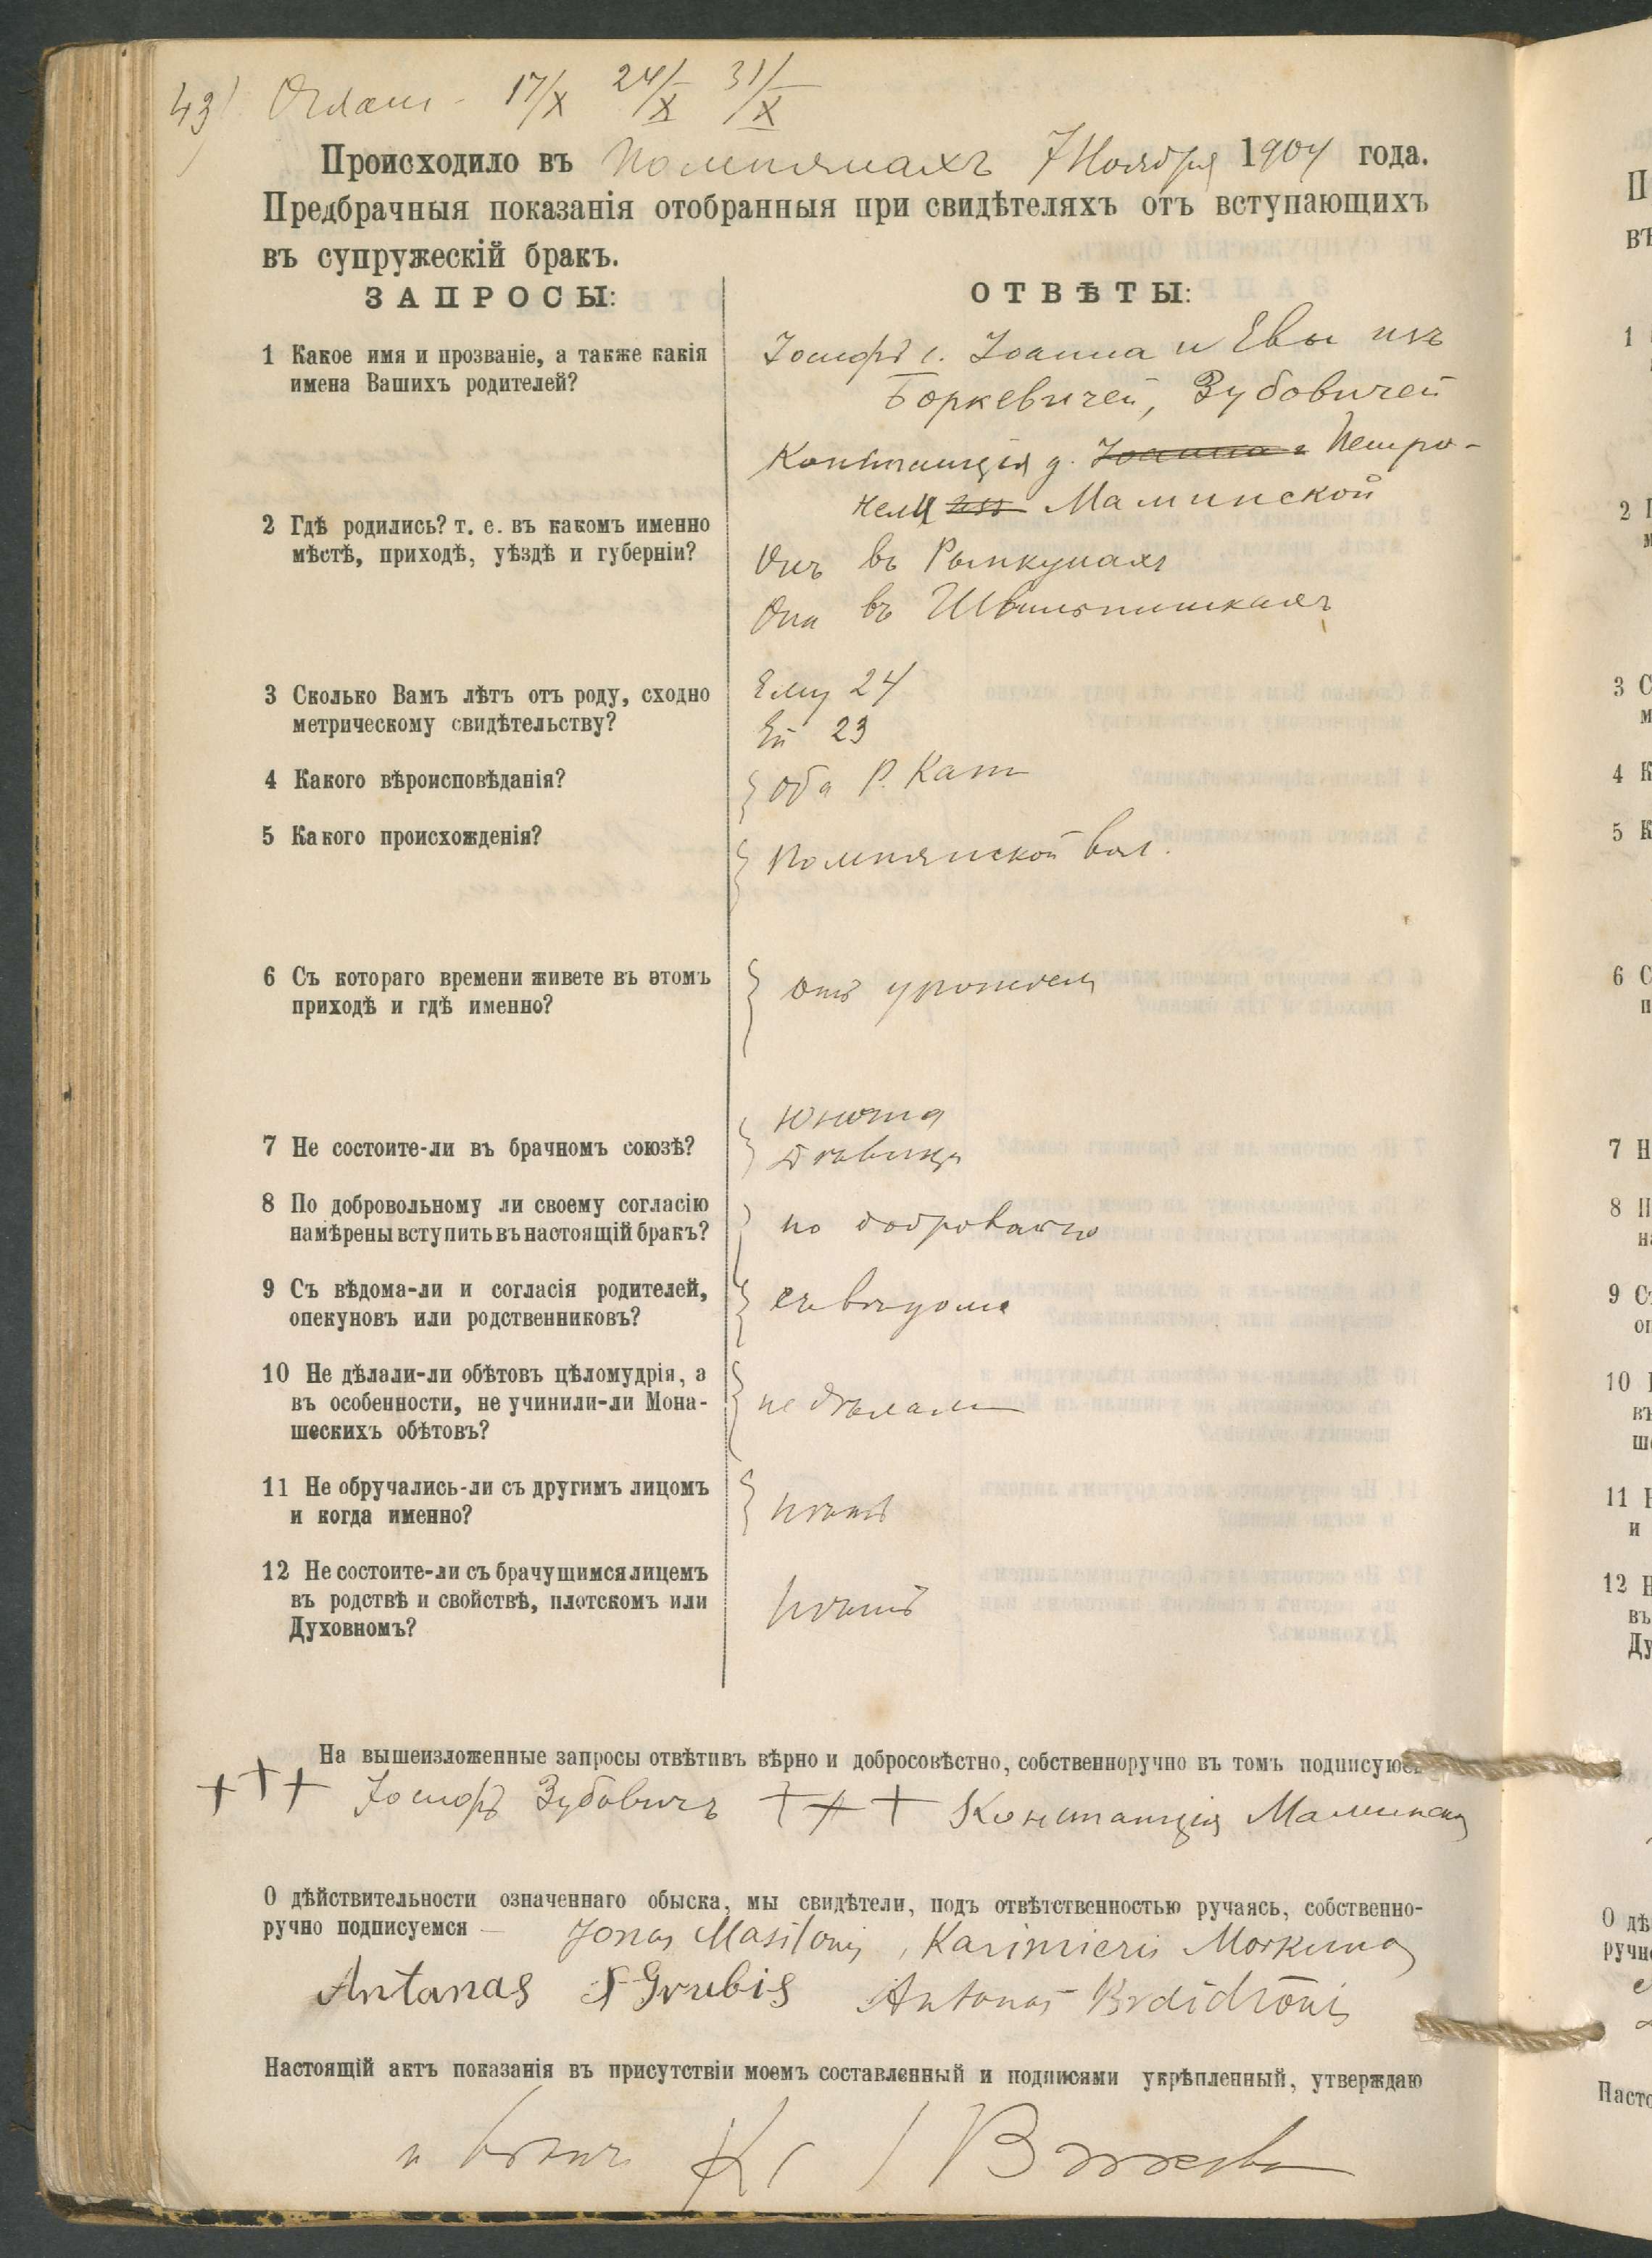 43) Оглаш. 17/X 24/X 31/X
Происходило въ Помпянахъ 7 Ноября 1904 года.
Предбрачныя показанія отобранныя при свидѣтеляхъ отъ вступающихъ
въ супружескій бракъ.
ЗАПРОСЫ:
ОТВѢТЫ:
1 Какое имя и прозваніе, а также какія
имена Вашихъ родителей?
Іосифъ с. Іоанна и Евы изъ
Боркевичей, Зубовичей
Констанція д. Іоанна и Петро-
нели изъ Малинской
2 Гдѣ родились? т. е. въ какомъ именно
мѣстѣ, приходѣ, уѣздѣ и губерніи?
Онъ въ Рымкунахъ
Она въ
3 Сколько Вамъ лѣтъ отъ роду, сходно
метрическому свидѣтельству?
Ему 24
Ей 23
4 Какого вѣроисповѣданія?
Оба Р. Кат
5 Какого происхожденія?
Помпянской вол.
6 Съ котораго времени живете въ этомъ
приходѣ и гдѣ именно?
Отъ урожден
7 Не состоите-ли въ брачномъ союзѣ?
Юноша
Дѣвица
8 По добровольному ли своему согласію
намѣрены вступить въ настоящій бракъ?
по
9 Съ вѣдома-ли и согласія родителей,
опекуновъ или родственниковъ?
съ вѣдома
10 Не дѣлали-ли обѣтовъ цѣломудрія, а
въ особенности, не учинили-ли Мона-
шескихъ обѣтовъ?
не дѣлали
11 Не обручались-ли съ другимъ лицомъ
и когда именно?
нѣтъ
12 Не состоите-ли съ брачущимся лицемъ
въ родствѣ и свойствѣ, плотскомъ или
Духовномъ?
нѣтъ
На вышеизложенные запросы отвѣтивъ вѣрно и добросовѣстно, собственноручно въ томъ подписуюсь
+++ Іосифъ Зубовичъ +++ Констанція Малинская
О дѣйствительности означеннаго обыска, мы свидѣтели, подъ отвѣтственностью ручаясь, собственно-
ручно подписуемся — Jonas Masilonis, Kazimieris Morkunas
Antanas Grubis Antonas
Настоящій актъ показанія въ присутствіи моемъ составленный и подписями укрѣпленный, утверждаю